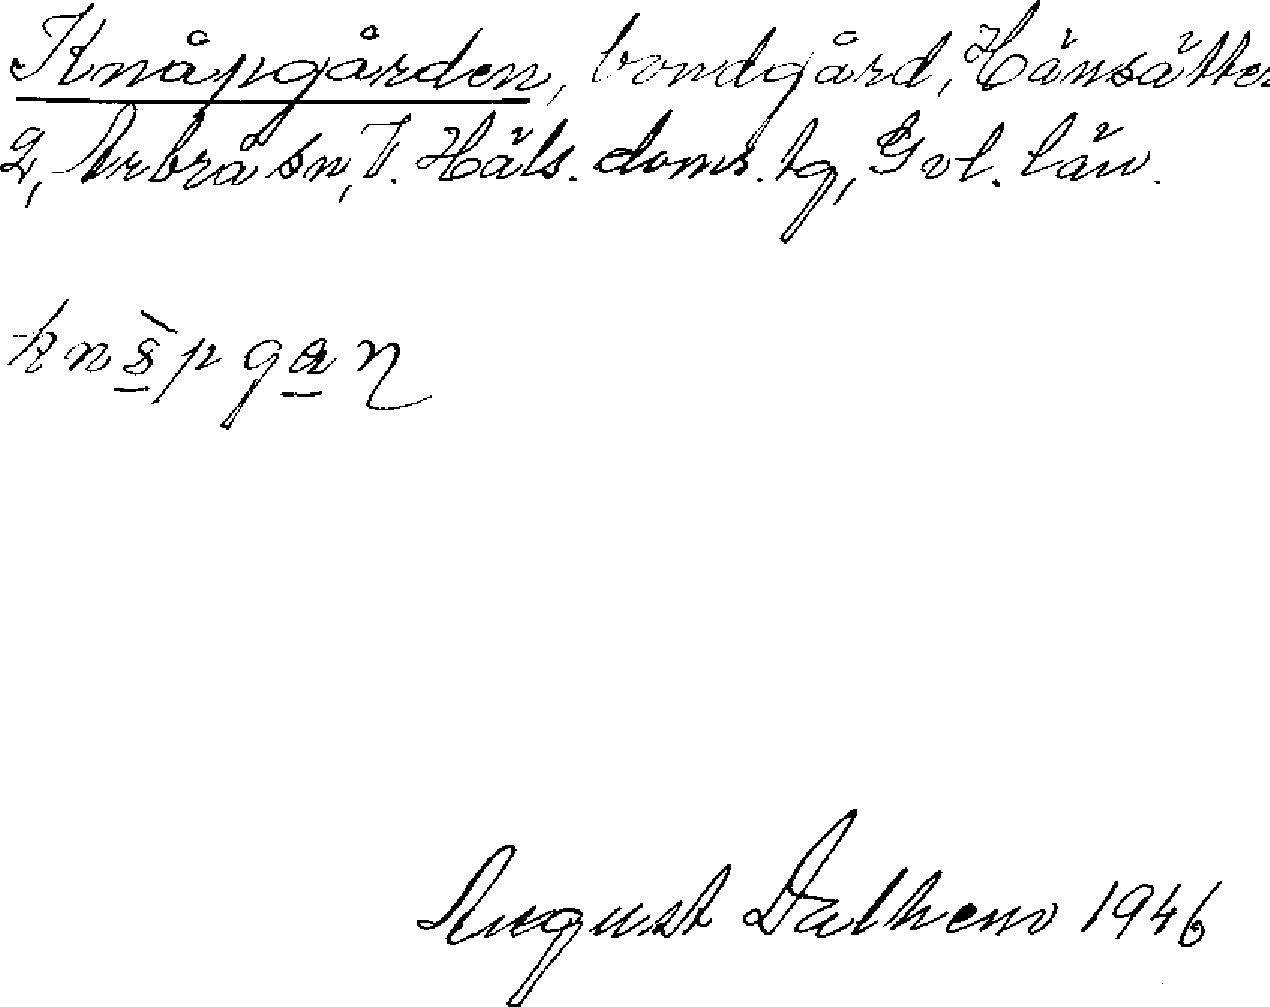 Knåpgården, bondgård, Hänsätter
2, Arbrå sn, V. Häls. doms. tg, Gvl. län.
August Dalhem 1946